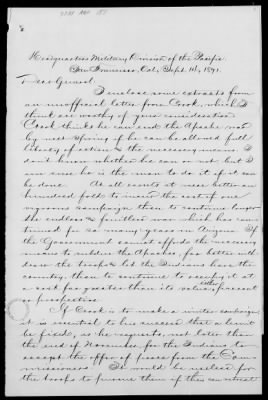 Headquarters Military Division of the Pacific
San Francisco, Cal, Sept. 1871.
Dear General.
I enclose some extracts from
an unofficial letter from Crook, which I
think are worthy of your consideration
Crook thinks he can end the Apache war
by next Spring if he can be allowed full
liberty of action & the necessary means I
don't know whether he can or not but I
am sure he is the man to do it if it can
be done. At all events it were better an
hundred fold to meet the cost of one
vigorous campaign than to continue longer
the endless & fruitless war which has con-
tinued for so many years in Arizona If
the Government cannot afford the necessary
means to subdue the Apaches, far better with-
draw the troops & let the Indians have the
country, than to continue to occupy it at
a cost far greater than its value, either present
or prospective.
If Crook is to make a winter campaign
it is essential to his success that a limit
be fixed, as he requests, not later than
the end of November for the Indians to
accept the offer of peace from the Com-
missioners It would be useless for
the troops to pursue them if they can at